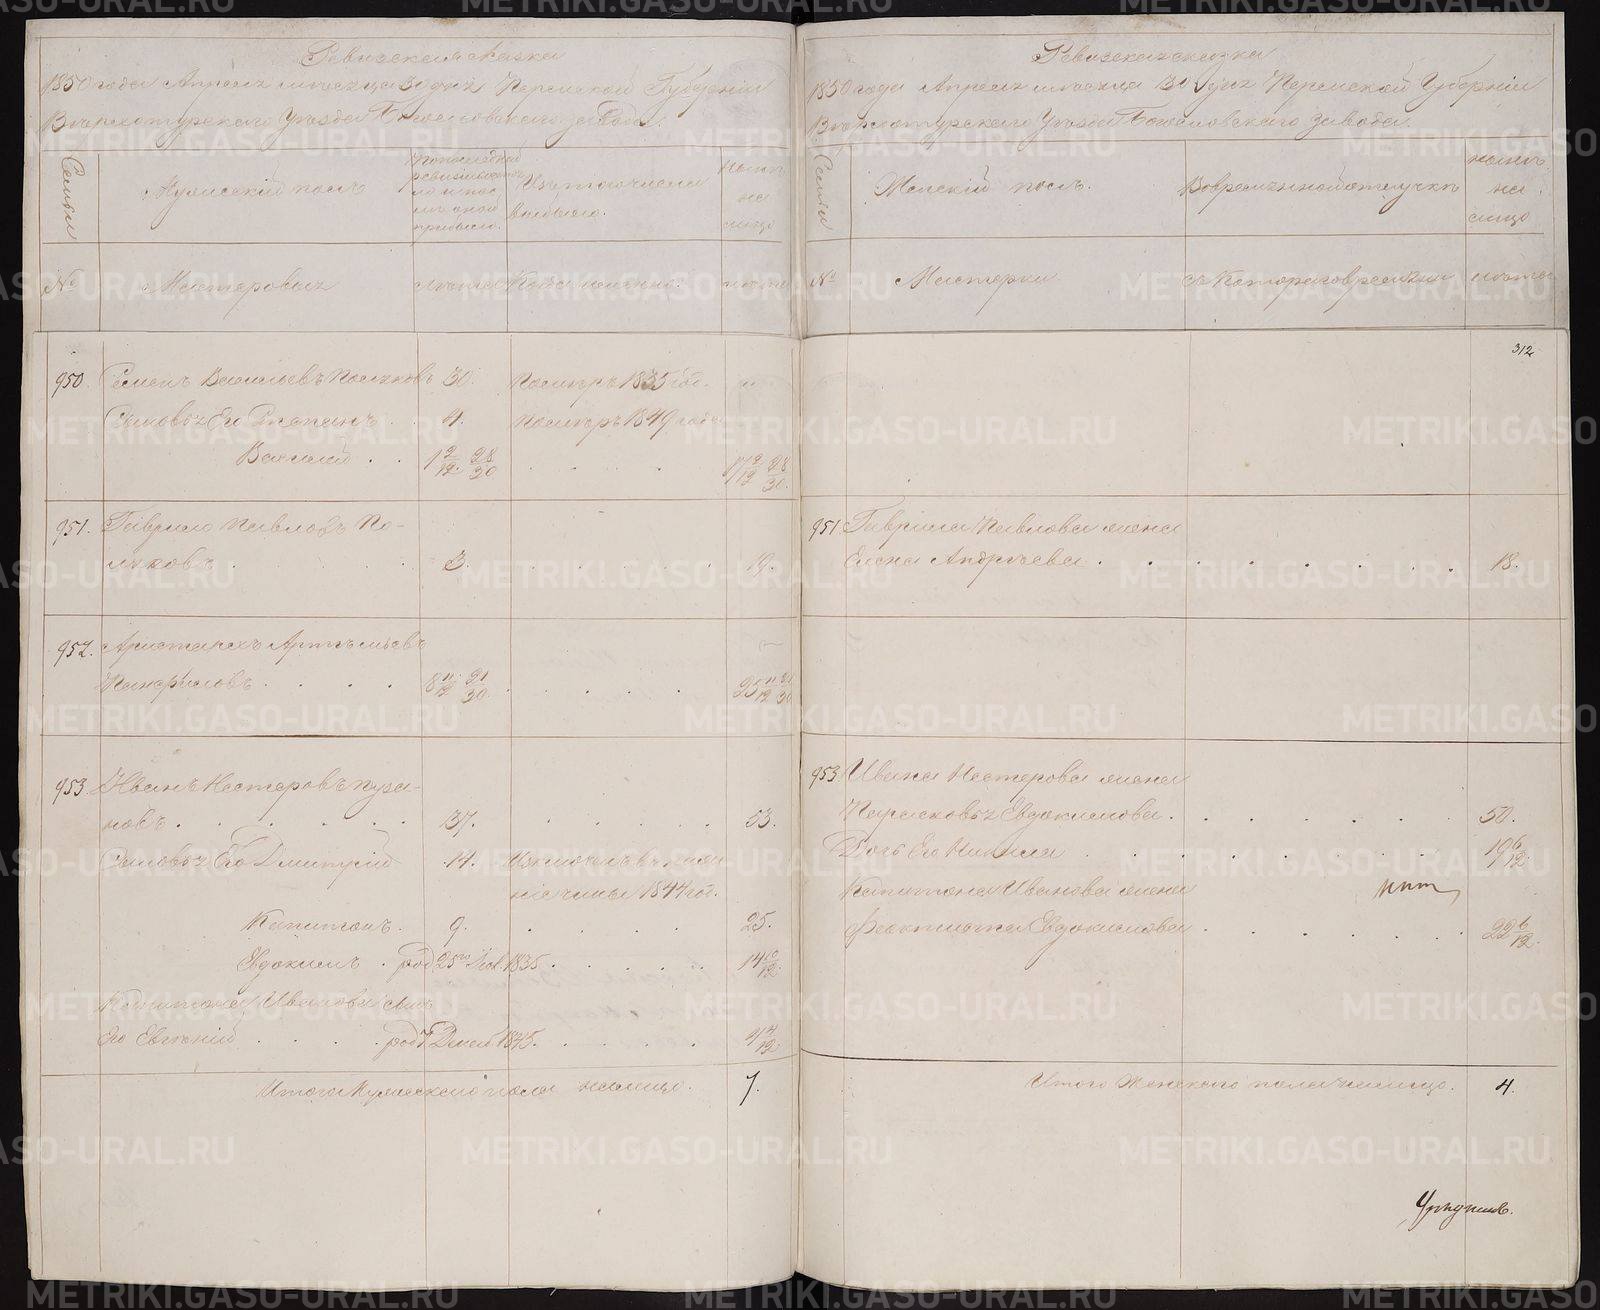 Ревизская сказка
1850 года Апреля месяца 30 дня Пермской Губерніи
Верхотурскаго Уезда Богословскаго завода.
Семьи
Мужескій полъ
По последней ревизіи состояло и после оной прибыло.
Изъ того числа выбыло.
Ныне на лицо
№
Мастеровыхъ
лета
Когда именно.
лета
950. Семенъ Васильевъ Поляковъ 30. Померъ 1835 год.
Сыновья Его Степанъ 4. Померъ 1849 года
Василій 1 2/12 28/30 17 2/12 28/30.
951. Гаврило Павловъ По-
ляковъ 3. 19.
952. Аристархъ Артемьевъ
Панфиловъ 8 11/12 21/30 25 11/12 21/30
953. Иванъ Нестеровъ Пуза-
новъ 37. 53.
Сыновья Его Дмитрій 14.
1844 год.
Капитонъ. 9. 25.
Евдокимъ род 25го Нояб. 1835. 14 6/12
Капитона Иванова сынъ
Его Евгеній род 7 Декаб 1845. 4 4/12
Итого Мужескаго пола налицо. 7.
Ревизская сказка
1850 года Апреля месяца 30 дня Пермской Губерніи
Верхотурскаго Уезда Богословскаго завода.
Семьи
Женскій полъ.
Во временной отлучке
ныне на лицо
№
Мастерки
Съ Котораго времени
лета
312
951 Гаврила Павлова жена
Елена Андреева 18.
953 Ивана Нестерова жена
Парасковья Евдокимова. 50.
Дочь Его 19 6/12
Капитона Иванова жена
Феоктиста Евдокимова 22 6/12
Итого Женскаго пола налицо. 4.
METRIKI.GASO-URAL.RU